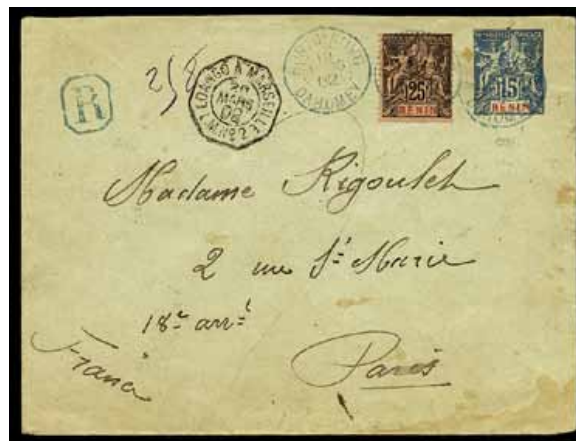 R
258
LOANGO A MARSEILLE
20
MARS
02
L.M. Nº 2
PORTO-NOVO
DAHOMEY
25
BENIN
15
BENIN
Madame Rigoulet
2 rue Ste Marie
18e arrt
France
Paris